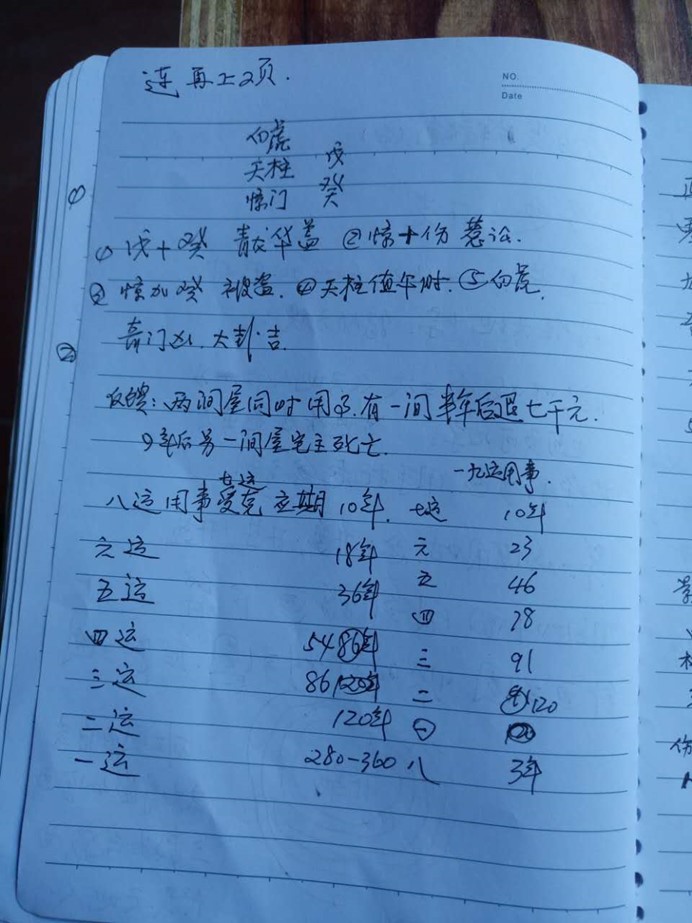 连再上2页.
NO.
Date
白虎
天柱 戊
惊门 癸
①
① 戊+癸 青龙华盖 ②惊+伤
③ 惊加癸 被盗. ④天柱值午时. ⑤白虎.
②
奇门凶. 大卦吉.
反馈: 两间屋同时用了. 有一间半年后退七千元.
9年后另一间屋宅主死亡.
一九运用事.
七运
八运用事受克 应期10年. 七运 10年
六运 18年 六 23
五运 36年 五 46
四 78
四运 54
三 91
三运 86
二 120
二运 120年 ㊀
一运 280-360 八 3年